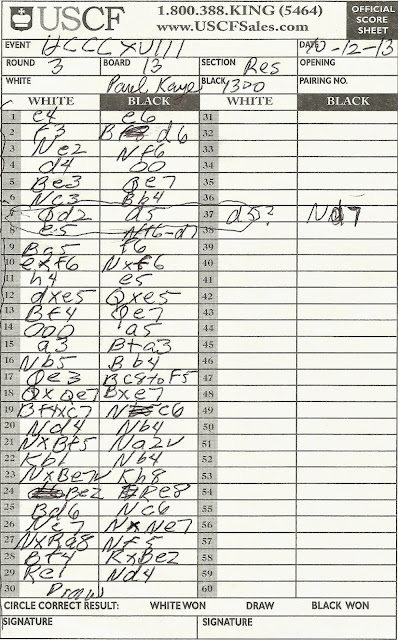 USCF 1.800.388.KING (5464)
www.USCFSales.com
OFFICIAL SCORE SHEET
EVENT HCCCXVIII DATE 10-12-13
ROUND 3 BOARD 13 SECTION Res OPENING
WHITE Paul Kaye BLACK 1300 PAIRING NO.
WHITE BLACK WHITE BLACK
1 e4 e6 31
2 f3 B d6 32
3 Ne2 Nf6 33
4 d4 00 34
5 Be3 Qe7 35
6 Nc3 Bb4 36
7 Qd2 d5 37 d5? Nd7
8 e5 Nf6-d7 38
9 Bg5 f6 39
10 exf6 Nxf6 40
11 h4 e5 41
12 dxe5 Qxe5 42
13 Bf4 Qe7 43
14 000 a5 44
15 a3 Bta3 45
16 Nb5 Bb4 46
17 Qe3 Bc8toF5 47
18 QxQe7 Bxe7 48
19 Bf4xc7 N c6 49
20 Nd4 Nb4 50
21 NxBf5 Na2v 51
22 Kb1 Nb4 52
23 NxBe7v Kh8 53
24 Be2 Re8 54
25 Bd6 Nc6 55
26 Nc7 NxNe7 56
27 NxRa8 Nf5 57
28 Bf4 RxBe2 58
29 Re1 Nd4 59
30 Draw 60
CIRCLE CORRECT RESULT: WHITE WON DRAW BLACK WON
SIGNATURE SIGNATURE